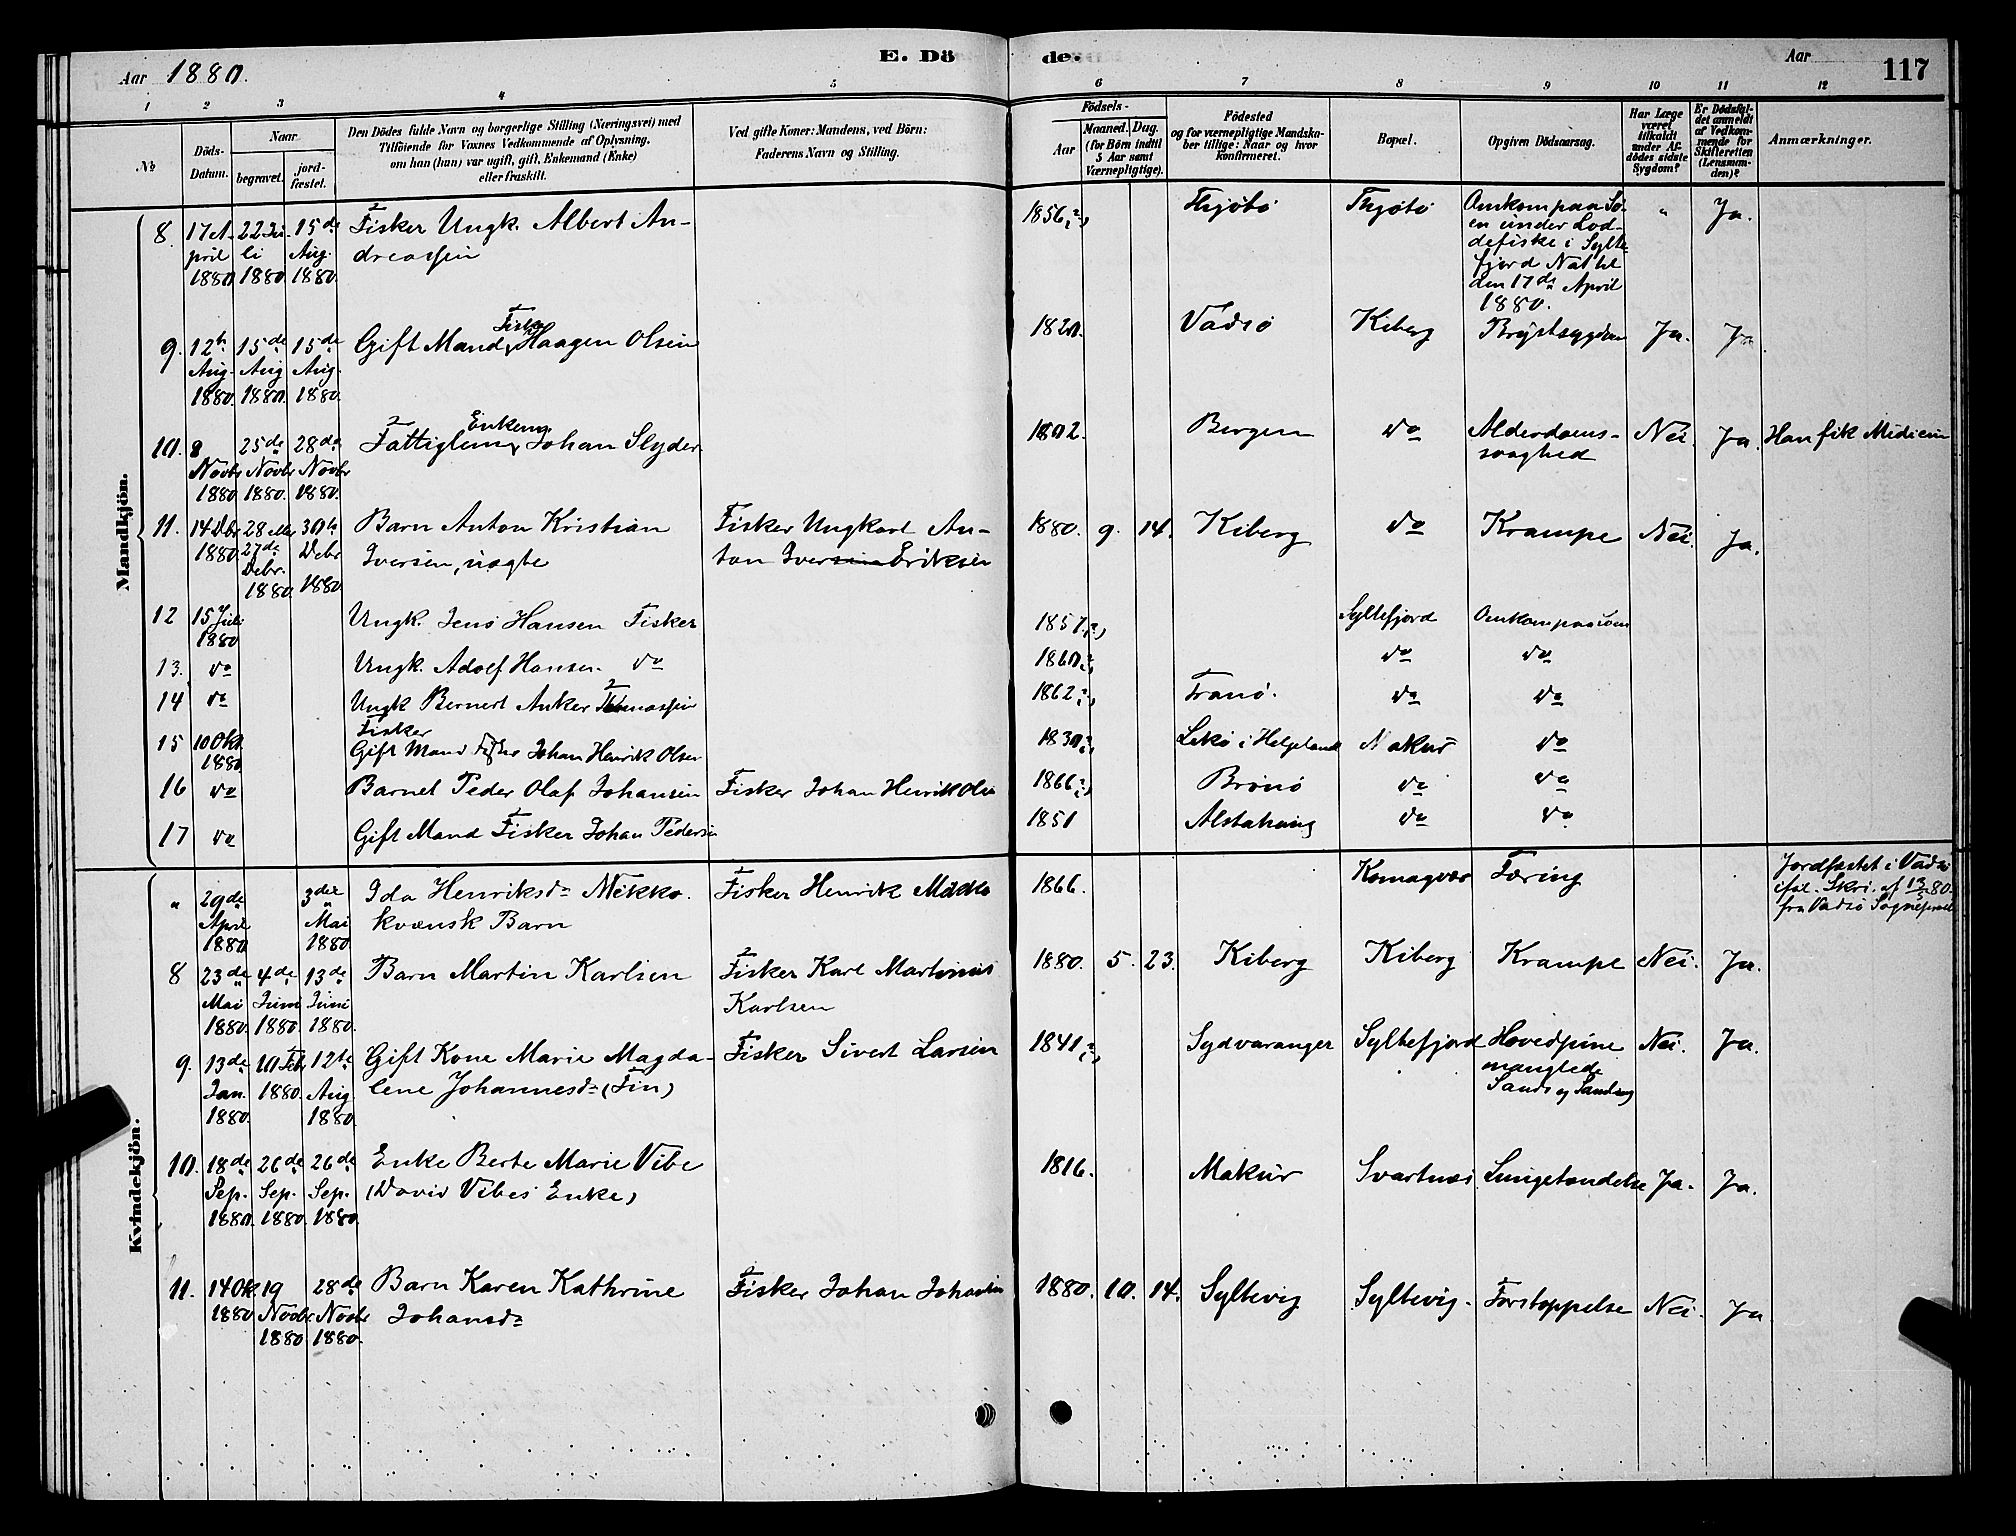 E. Dö de.
Aar 1880.
Aar
117
1 2 3 4 5 6 7 8 9 10 11 12
No
Döds-
Datum.
Naar
begravet.
jord-
fæstet.
Den Dödes fulde Navn og borgerlige Stilling (Næringsvei) med
Tilföiende for Voxnes Vedkommende af Oplysning,
om han (hun) var ugift, gift, Enkemand (Enke)
eller fraskilt.
Ved gifte Koner: Mandens, ved Börn:
Faderens Navn og Stilling.
Födsels-
Aar
Maaned. Dag.
(for Börn indtil
5 Aar samt
Værnepligtige).
Födested
og for værnepligtige Mandska-
ber tillige: Naar og hvor
konfirmeret.
Bopæl.
Opgiven Dödsaarsag.
Har Læge
været
tilkaldt
under Af-
dödes sidste
Sygdom?
Er Dödsfal-
det anmeldt
af Vedkom-
mende for
Skifteretten
(Lensman-
den)?
Anmærkninger.
Mandkjön.
8. 17 A- 22 Ju- 15de Fisker Ungk. Albert An- 1856(?) Thjötö Thjötö Omkom paa Sø- " Ja.
pril li Aug. dreassen en under Lod-
1880 1880. 1880. defiske i Sylte-
fjord Nat til
den 17de April
1880.
Fisker
9. 12te 15de 15de Gift Mand, Haagen Olsen 1820. Vadsö Kiberg Brystsygdom Ja. Ja.
Aug. Aug Aug.
1880. 1880. 1880.
Enkem.
10. 8 25de 28de Fattiglem, Johan Slyder 1802. Bergen do Alderdoms- Nei. Ja. Han fik Medicin
Novbr Novbr Novbr svaghed
1880 1880. 1880.
11. 14 Dbr 28 30te Barn Anton Kristian Fisker Ungkarl An- 1880. 9. 14. Kiberg do Krampe Nei. Ja.
1880. 27de Debr Iversen, uægte ton Iversen Eriksen
Debr.
1880. 1880.
12 15 Juli Ungk. Jens Hansen Fisker 1857(?) Syltefjord Omkom paa Søen
1880
13. do Ungk. Adolf Hansen. do 1860(?) do do
14 do Ungk Bernert Anker Thomassen 1862(?) Tranö. do do
Fisker
15 10 Okt. Gift Mand Fisker Johan Henrik Olsen 1830(?) Lekö i Helgeland Makur do
1880
16 do Barnet Peder Olaf Johansen Fisker Johan Henrik Olsen 1866(?) Brönö do do
17 do Gift Mand Fisker Johan Pedersen 1851 Alstahaug do do
Kvindekjön.
" 29de 3die Ida Henriksdr Mikko. Fisker Henrik Mikko 1866. Komagvær Tæring Jordfæstet i Vadsö
April Mai kvænsk Barn iføl. Skri. af 13/5 80.
1880 1880 fra Vadsö Sognepræst
8 23de 4de 13de Barn Martin Karlsen Fisker Karl Martinus 1880. 5. 23. Kiberg Kiberg Krampe Nei. Ja.
Mai Juni Juni Karlsen
1880. 1880. 1880.
9. 13de 10 Feb. 12te Gift Kone Marie Magda- Fisker Sivert Larsen 1841(?) Sydvaranger Syltefjord Hovedpine Nei. Ja.
Jan. 1880. Aug lene Johannesdr (Fin) manglede
1880. 1880. Sands og Samling
10. 18de 26de 26de Enke Berte Marie Vibe 1816. Makur Svartnes Lungetændelse Ja. Ja.
Sep. Sep. Sep. (David Vibes Enke)
1880. 1880. 1880.
11. 14 Okt. 19 28de Barn Karen Kathrine Fisker Johan Johansen 1880. 10. 14. Syltevig Syltevig. Forstoppelse Nei. Ja
1880 Novbr Novbr Johansdr
1880 1880.